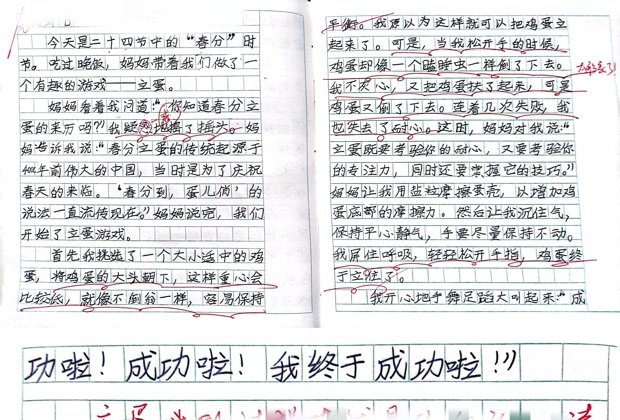 今天是二十四节中的“春分”时
节。吃过晚饭，妈妈带着我们做了一
个有趣的游戏——立蛋。
妈妈看着我问道：“你知道春分立
蛋的来历吗？”我疑惑地摇了摇头。妈
妈告诉我说：“春分立蛋的传统起源于
4000年前伟大的中国，当时是为了庆祝
春天的来临。‘春分到，蛋儿俏’的
说法一直流传现在。”妈妈说完，我们
开始了立蛋游戏。
首先我挑选了一个大小适中的鸡
蛋，将鸡蛋的大头朝下，这样重心会
比较低，就像不倒翁一样，容易保持
平衡。我原以为这样就可以把鸡蛋立
起来了。可是，当我松开手的时候，
鸡蛋却像一个瞌睡虫一样倒了下去。
我不灰心，又把鸡蛋扶了起来，可是
鸡蛋又倒了下去。连着几次失败，我
也失去了耐心。这时，妈妈对我说：“
立蛋既要考验你的耐心，又要考验你
的专注力，同时还要掌握它的技巧。”
妈妈让我用盐粒摩擦蛋壳，以增加鸡
蛋底部的摩擦力。然后让我沉住气，
保持平心静气，手要尽量保持不动。
我屏住呼吸，轻轻松开手指，鸡蛋终
于立住了。
我开心地手舞足蹈大叫起来：“成
功啦！成功啦！我终于成功啦！”